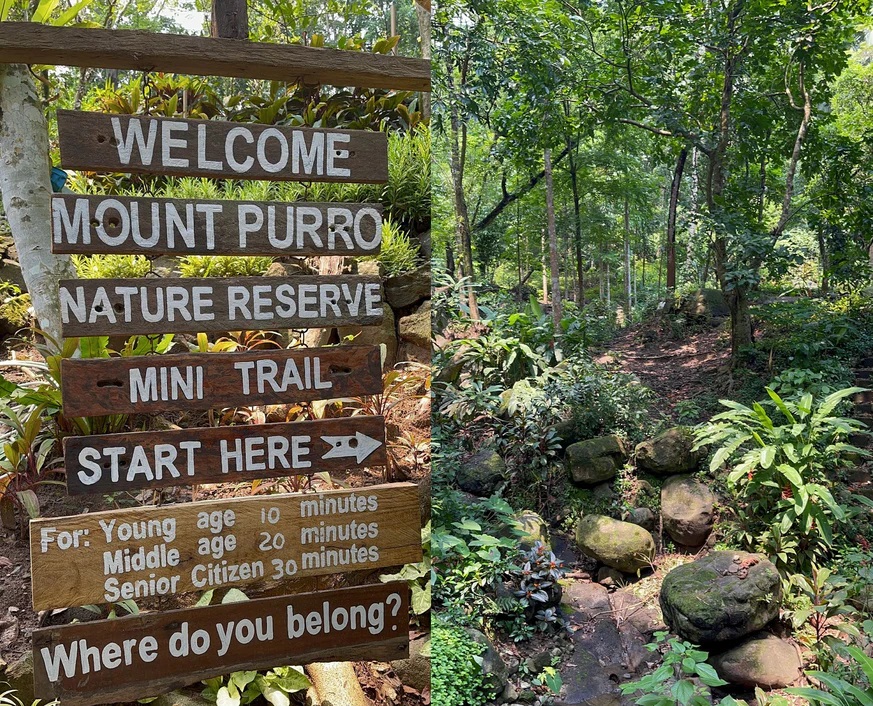 WELCOME
MOUNT PURRO
NATURE RESERVE
MINI TRAIL
START HERE
For: Young age 10 minutes
Middle age 20 minutes
Senior Citizen 30 minutes
Where do you belong?